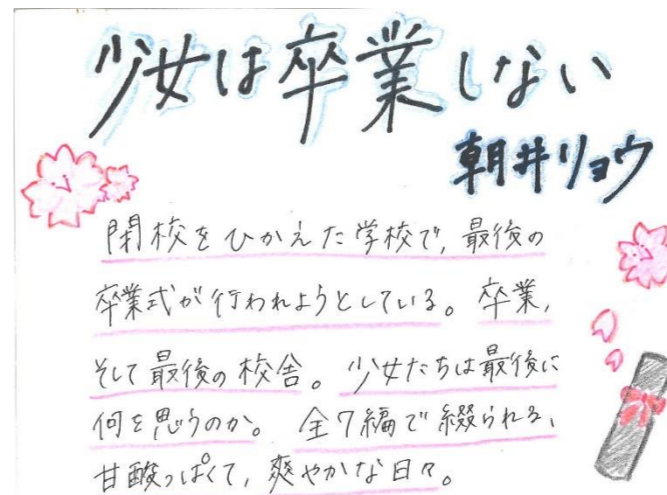 少女は卒業しない
朝井リョウ
閉校をひかえた学校で, 最後の
卒業式が行われようとしている。卒業,
そして最後の校舎。少女たちは最後に
何を思うのか。全7編で綴られる、
甘酸っぱくて, 爽やかな日々。